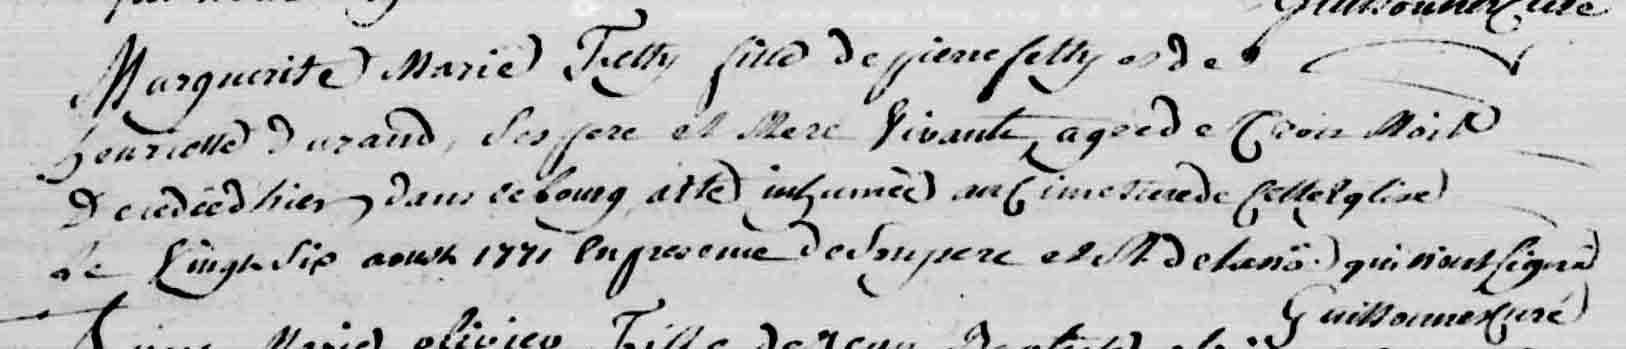 Guillonnet Curé
Marguerite Marie Fetty fille de pierre fetty et de
henriette durand, Ses pere et Mere Vivants, agee de Trois Mois
Decedée d'hier, dans le bourg, a été inhumée au Cimetiere de Cette Eglise
le Vingt Six aoust 1771 En presence de Son pere et de qui n'ont signé
Curé
Marie olivier Fille de Jean Baptiste